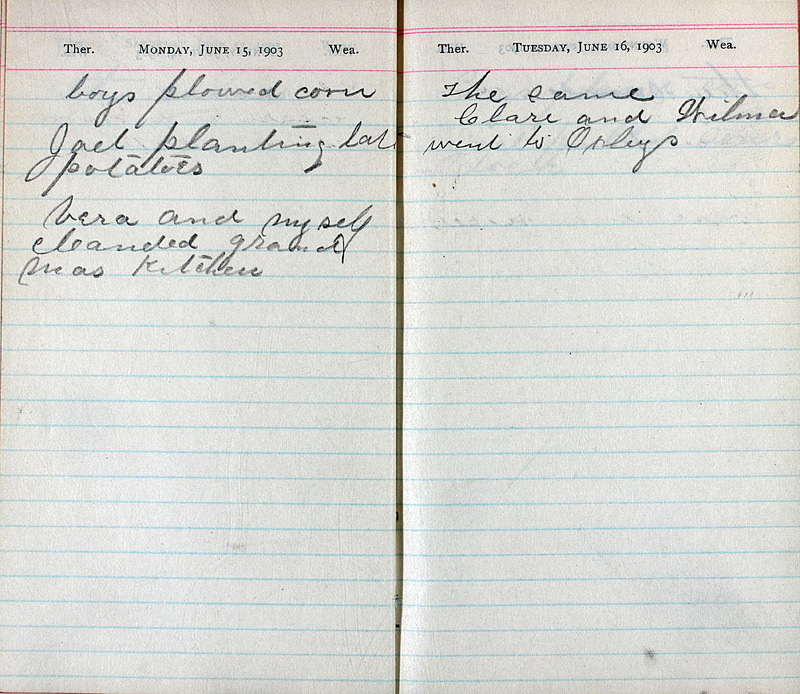 Ther. MONDAY, JUNE 15, 1903 Wea.
boys plowed corn
Joel planting late
potatoes
Vera and myself
cleanded grand
mas Kitchen
Ther. TUESDAY, JUNE 16, 1903 Wea.
The same
Clare and Wilma
went to Oxleys